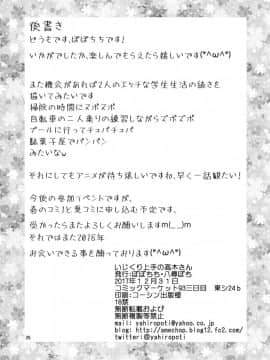 後書き
どうもです,ぽぽちちです!
いかがでしたか,楽しんでもらえたら嬉しいです(*^ω^*)
また機会があれば2人のエッチな学生生活の続きを
描いてみたいです
掃除の時間にヌポヌポ
自転車の二人乗りの練習しながらでポで ポ
プールに行ってチュパチュパ
駄菓子屋でパンパン
みたいなw
それにしてもアニメが待ち遠しいですね,早く一話観たい!
今後の参加イベントですが,
春のコミ1と夏コミに申し込む予定です,
受かったらまたよろしくお願いしますm(__)m
それではまた2018年
お会いできる事を願っております(*^ω^*)
いじくり上手の高木さん
発行:ぽぽちち・八尋ぽち
2017年12月31日
コミックマーケット93三日目 東シ24b
印刷:コーシン出版様
18禁
無断転載および
無断複製等禁止
mail: yahiropoti@yahoo.co.jp
blog: http://amechop.blog12.fc2.com/
twitter:@yahiropoti